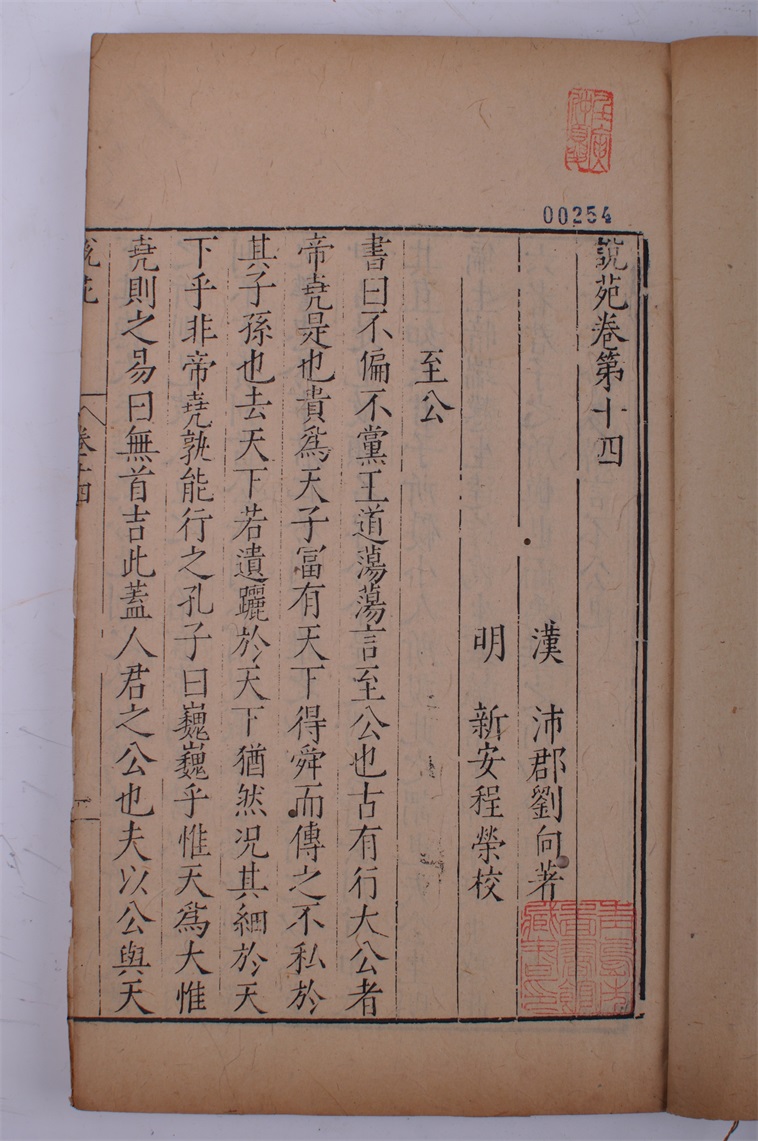 00254
説苑卷第十四
漢 沛郡劉向著
明 新安程榮校
至公
書曰不偏不黨王道蕩蕩言至公也古有行大公者
帝堯是也貴爲天子冨有天下得舜而傳之不私於
其子孫也去天下若遺躧於天下猶然况其細於天
下乎非帝堯孰能行之孔子曰巍巍乎惟天爲大惟
堯則之易曰無首吉此蓋人君之公也夫以公與天
説苑
卷十四